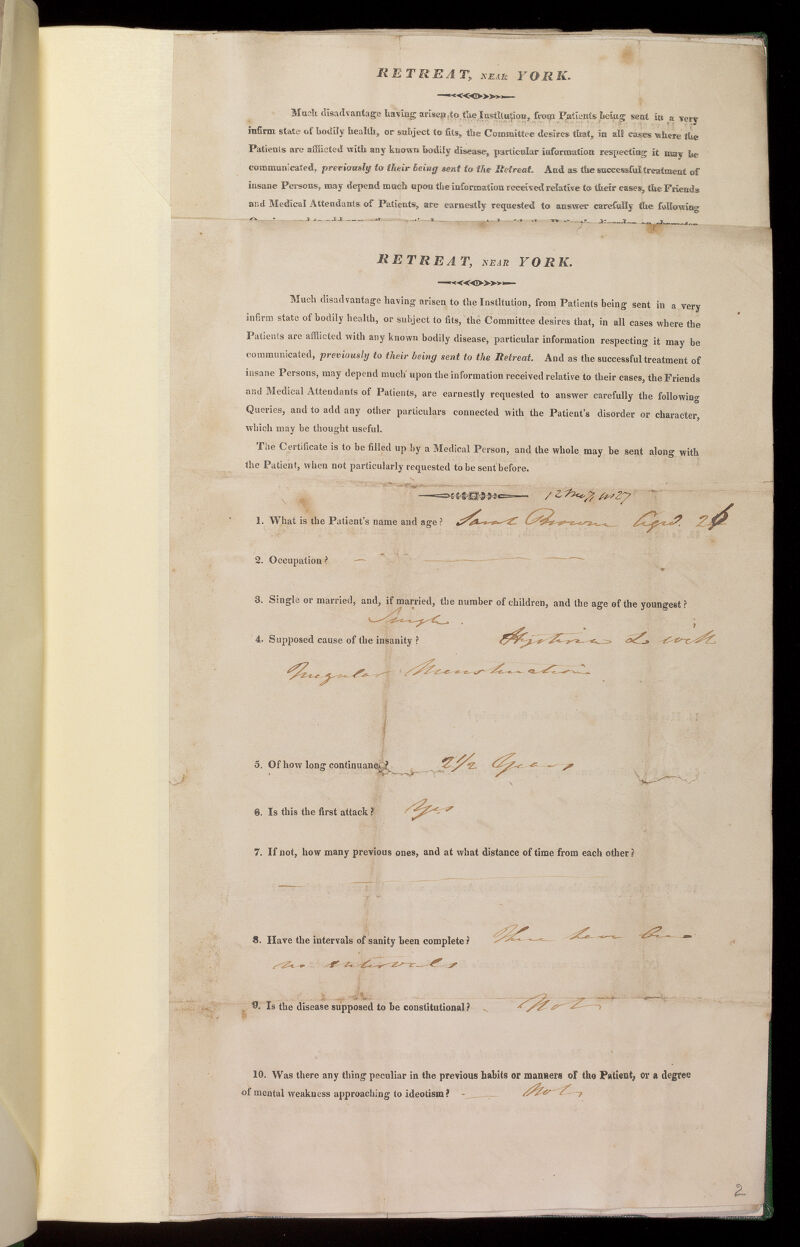 RETREAT, NEAR YORK.
Much disadvantage having arisen to the Institution, from Patients being sent in a very
infirm state of bodily health, or subject to fits, the Committee desires that, in all cases where the
Patients are afflicted with any known bodily disease, particular information respecting it may be
communicated, previously to their being sent to the Retreat. And as the successful treatment of
insane Persons, may depend much upon the information received relative to their cases, the Friends
and Medical Attendants of Patients, are earnestly requested to answer carefully the following
RETREAT, NEAR YORK.
Much disadvantage having arisen to the Institution, from Patients being sent in a very
infirm state of bodily health, or subject to fits, the Committee desires that, in all cases where the
Patients are afflicted with any known bodily disease, particular information respecting it may be
communicated, previously to their being sent to the Retreat. And as the successful treatment of
insane Persons, may depend much upon the information received relative to their cases, the Friends
and Medical Attendants of Patients, are earnestly requested to answer carefully the following
Queries, and to add any other particulars connected with the Patient's disorder or character,
which may be thought useful.
The Certificate is to be filled up by a Medical Person, and the whole may be sent along with
the Patient, when not particularly requested to be sent before.
12
1. What is the Patient's name and age? Sarah Browne Aged. 26
2. Occupation? —
3. Single or married, and, if married, the number of children, and the age of the youngest?
Single.
4. Supposed cause of the insanity? Hysteria with
Irregular Menstruation
5. Of how long continuance? 2 1/2 Years
6. Is this the first attack? Yes
7. If not, how many previous ones, and at what distance of time from each other?
8. Have the intervals of sanity been complete? There have been
no intervals
9. Is the disease supposed to be constitutional? Not
10. Was there any thing peculiar in the previous habits or manners of the Patient, or a degree
of mental weakness approaching to ideotism? - Not
2